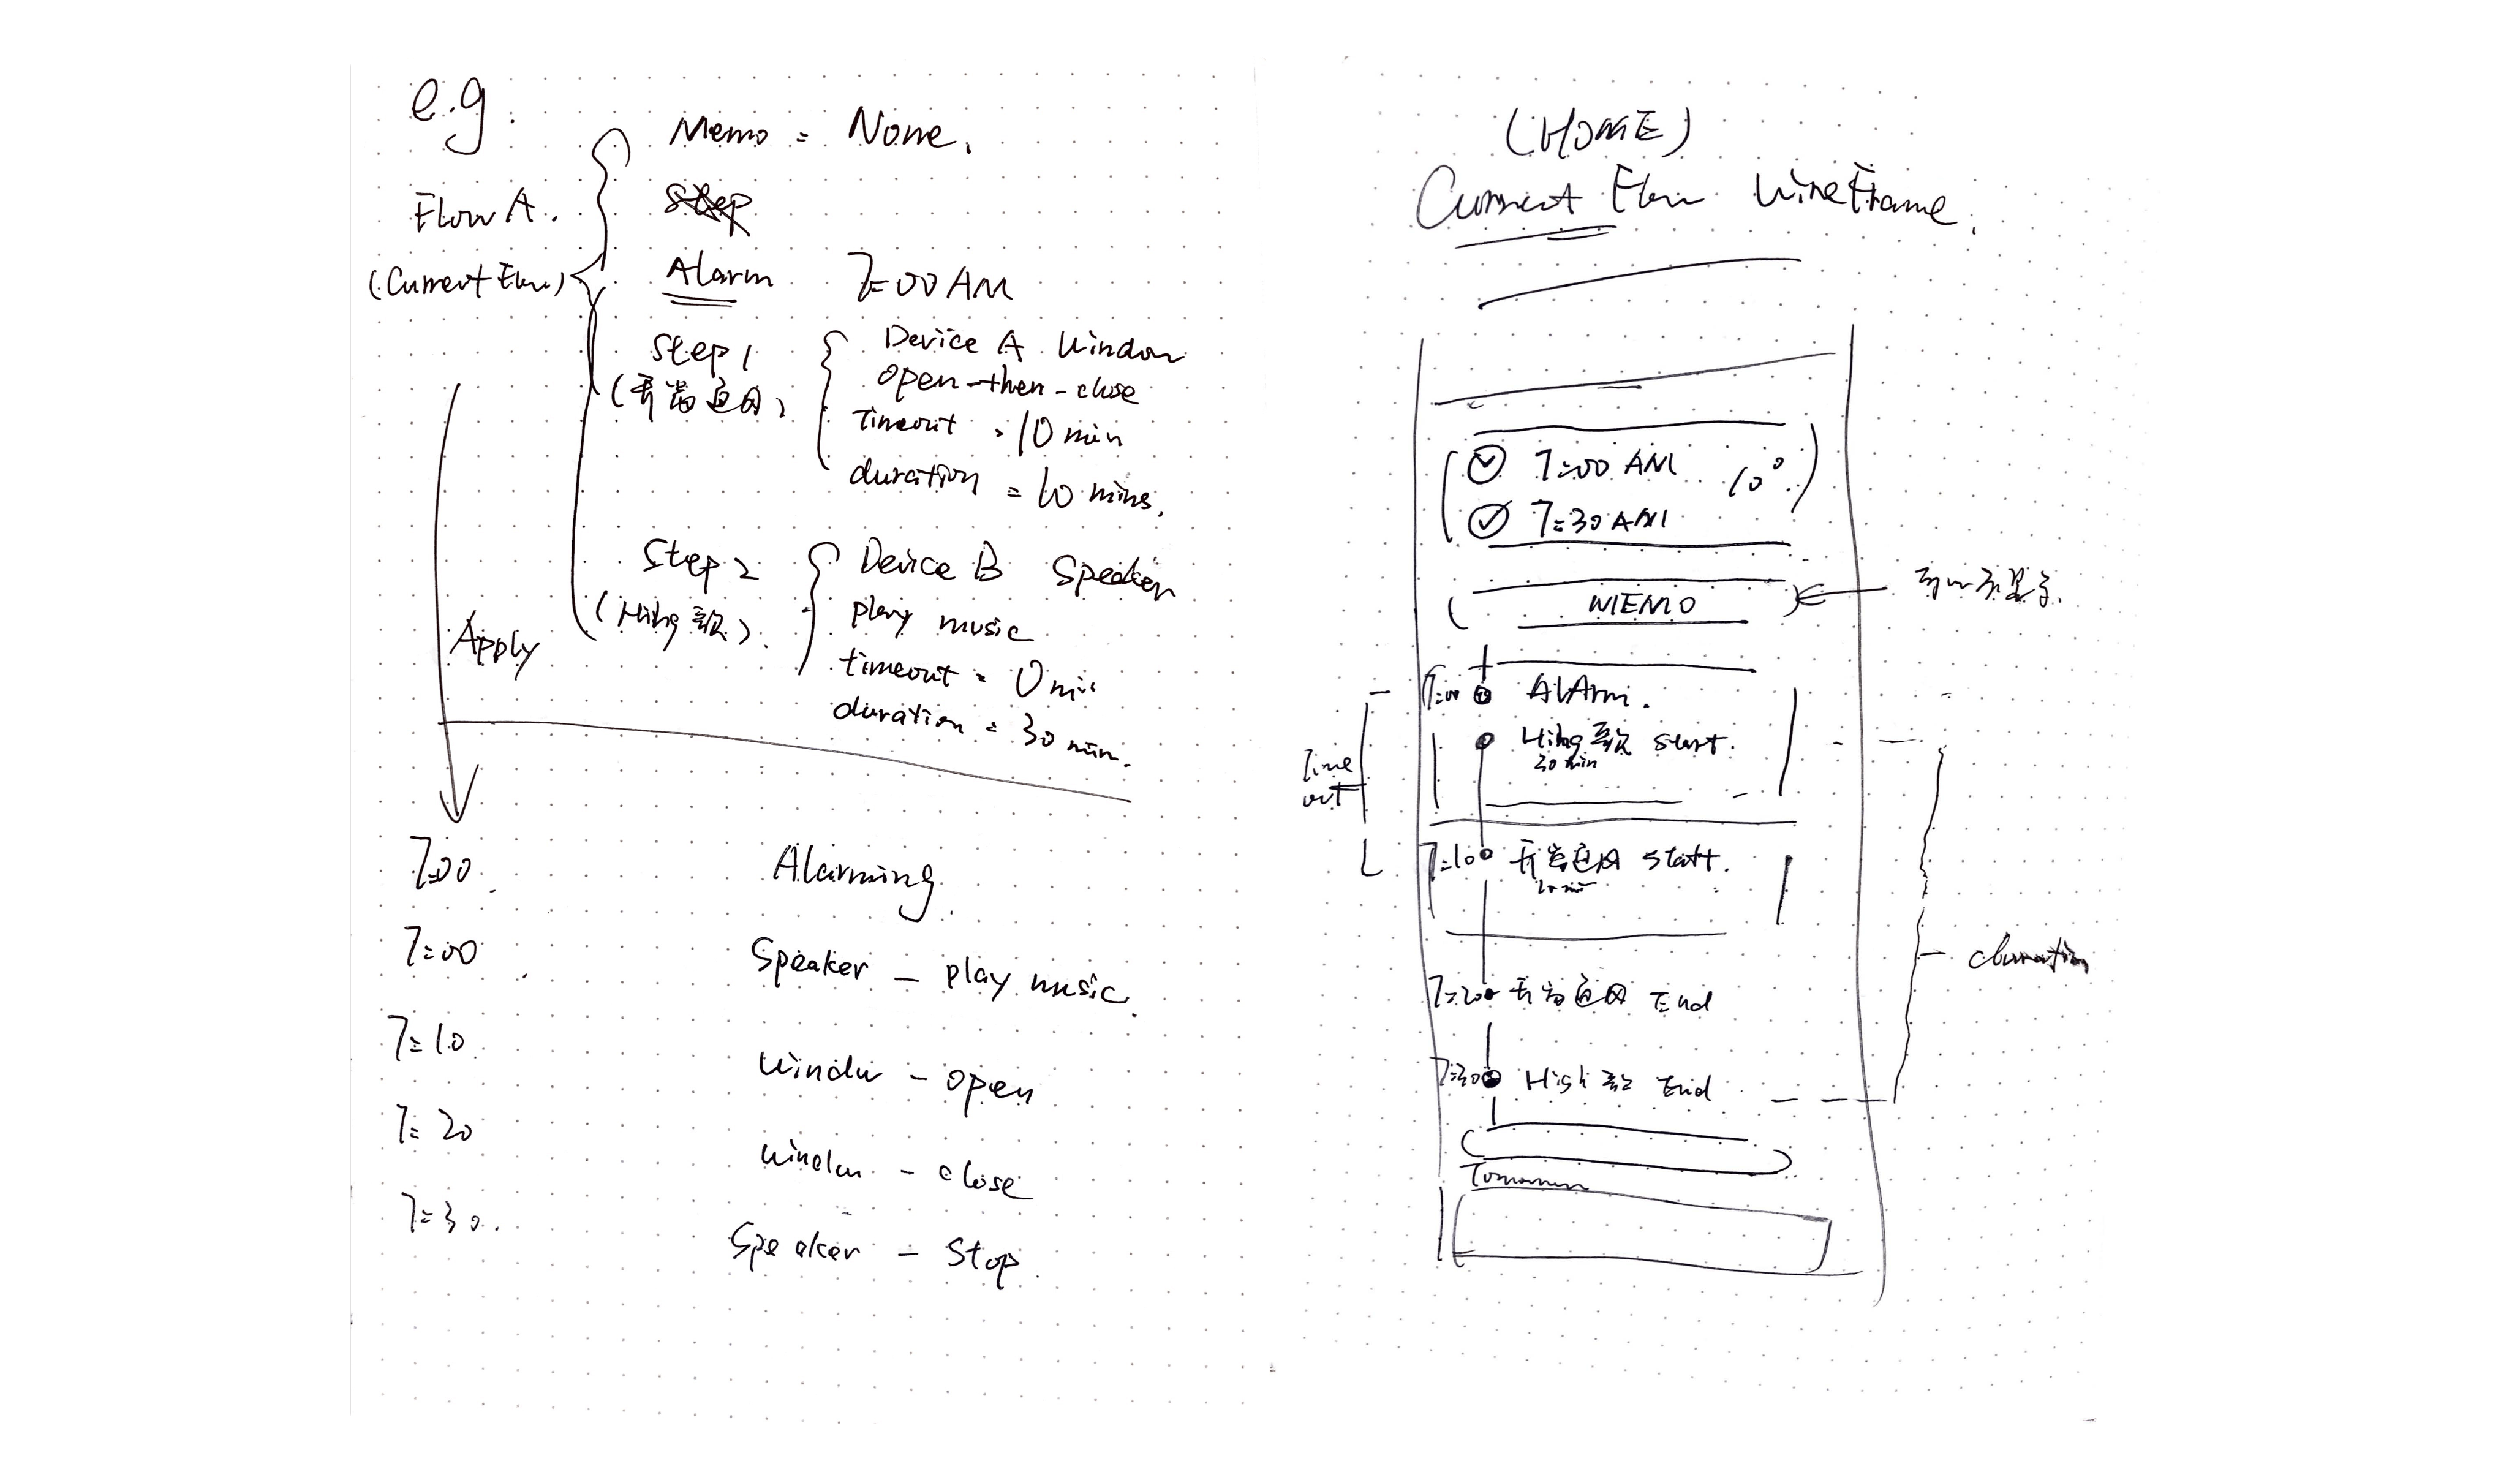 e.g.
Flow A.
(Current Flow)
Memo : None.
Alarm 7:00 AM
Step 1
(开窗通风)
Device A Window
open-then-close
Timeout : 10 min
duration = 10 mins.
Step 2
(High歌).
Device B Speaker
play music
timeout = 0 min
duration = 30 min.
Apply
7:00 Alarming.
7:00 Speaker - play music.
7:10 Window - open
7:20 Window - close
7:30. Speaker - Stop.
(HOME)
Current Flow WireFrame.
7:00 AM 10°
7:30 AM
MEMO
7:00 Alarm.
High歌 start.
30 min
Time
out
7:10 开窗通风 start.
10 min
7:20 开窗通风 End
7:30 High歌 End
duration
Tomorrow